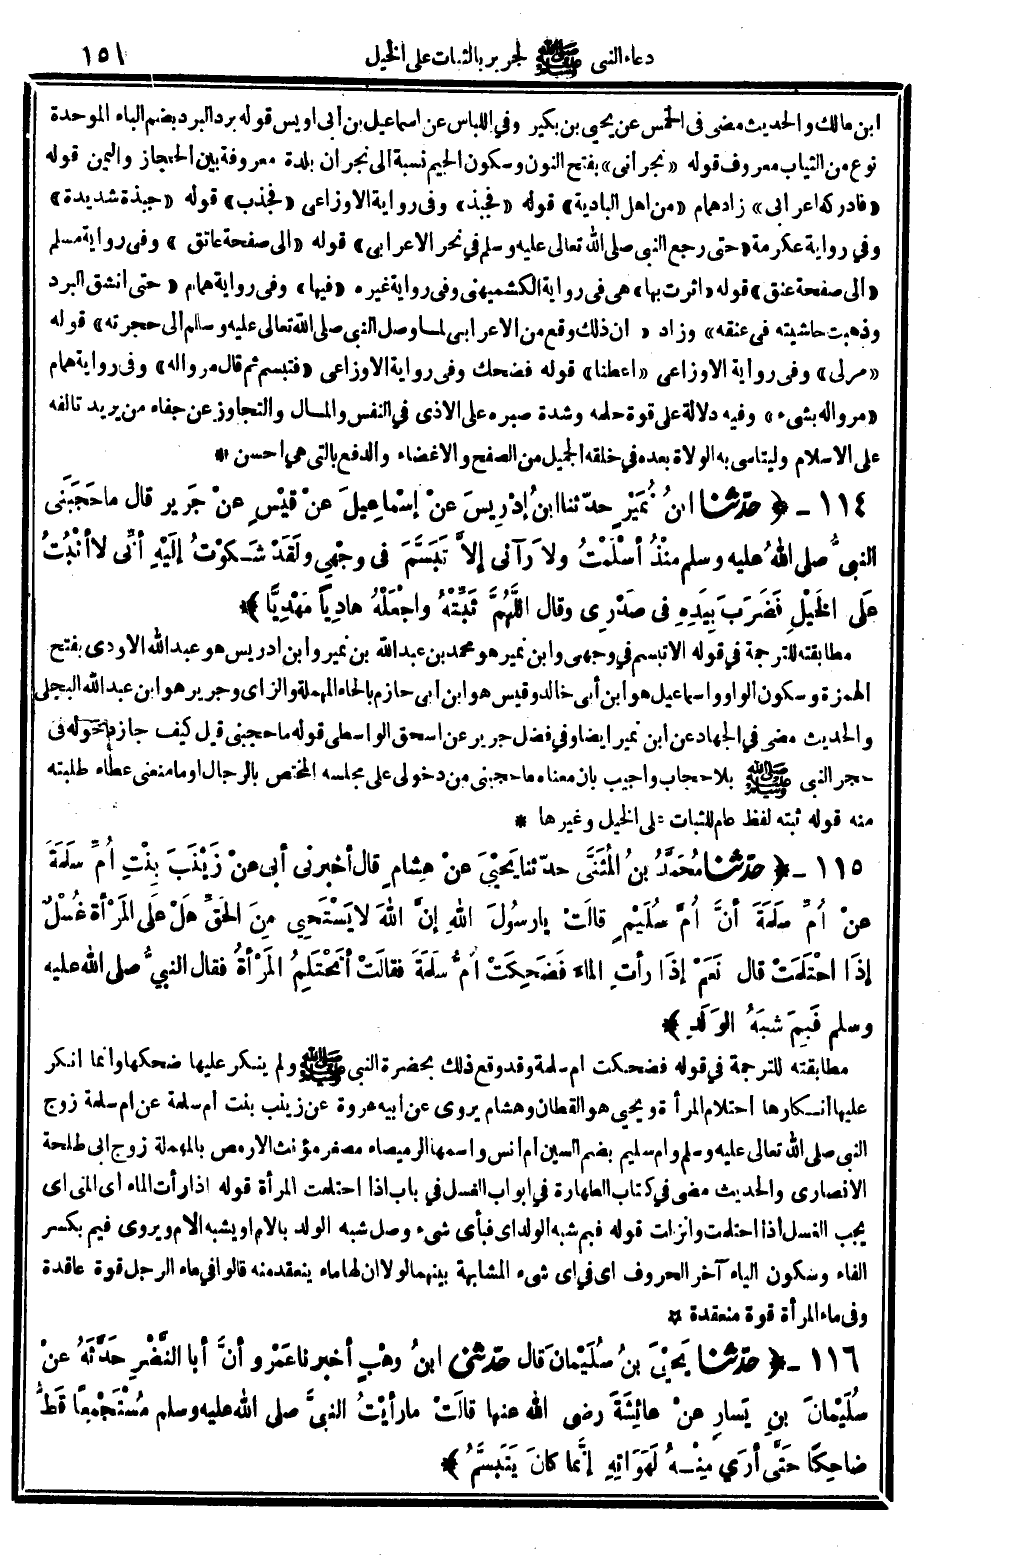 دعاء النبي ﷺ لجرير بالثبات على الخيل ١٥١
ابن مالك والحديث مضى في الخمس عن يحيى بن بكير وفي اللباس عن اسماعيل بن أبي اويس قوله برد البرد بضم الباء الموحدة
نوع من الثياب معروف قوله «نجراني» بفتح النون وسكون الجيم نسبة الى نجران بلدة معروفة بين الحجاز واليمن قوله
«فادركه اعرابي» زاد همام «من اهل البادية» قوله «فجبذ» وفى رواية الاوزاعى «فجذب» قوله «جبذة شديدة»
وفي رواية عكرمة «حتى رجع النبى صلى الله تعالى عليه وسلم في نحر الاعرابي» قوله «الى صفحة عاتق» وفى رواية مسلم
«الى صفحة عنق» قوله «اثرت بها» هى فى رواية الكشميهنى وفى رواية غيره «فيها» وفى رواية همام «حتى انشق البرد
وذهبت حاشيته فى عنقه» وزاد «ان ذلك وقع من الاعرابى لما وصل النبى صلى الله تعالى عليه وسلم الى حجرته» قوله
«مرلى» وفى رواية الاوزاعى «اعطنا» قوله فضحك وفى رواية الاوزاعى «فتبسم ثم قال مروا له» وفى رواية همام
«مروا له بشىء» وفيه دلالة على قوة حلمه وشدة صبره على الاذى في النفس والمال والتجاوز عن جفاء من يريد تالفه
على الاسلام وليتاسى به الولاة بعده في خلقه الجميل من الصفح والاغضاء والدفع بالتى هي احسن *
١١٤ - ﴿ حَدَّثَنَا ابنُ نُمَيْرٍ حدثنا ابنُ إدْرِيسَ عَنْ إسْماعِيلَ عَنْ قَيْسٍ عنْ جَرِيرٍ قال ما حَجَبَنِى
النبىُّ صلى اللهُ عليه وسلم مُنْذُ أسْلَمْتُ ولا رَآنى إلاَّ تَبَسَّمَ فى وجْهِي ولَقَدْ شَكَوْتُ إلَيْهِ أنِّى لا أثْبُتُ
عَلَى الخَيْلِ فَضَرَبَ بِيَدِهِ فى صَدْرِى وقال اللَّهُمَّ ثَبِّتْهُ واجْعَلْهُ هادِياً مَهْدِيًّا ﴾*
مطابقته للترجمة في قوله الا تبسم في وجهى وابن نمير هو محمد بن عبدالله بن نمير وابن ادريس هو عبدالله الاودى بفتح
الهمزة وسكون الواو واسماعيل هو ابن أبى خالد وقيس هو ابن ابى حازم بالحاء المهملة والزاى وجرير هو ابن عبدالله البجلى
والحديث مضى في الجهاد عن ابن نمير ايضا وفي فضل جرير عن اسحق الواسطى قوله ما حجبنى قيل كيف جاز دخوله فى
حجر النبى ﷺ بلا حجاب واجيب بان معناه ما حجبنى من دخولى على مجلسه المختص بالرجال او ما منعنى عطاء طلبته
منه قوله ثبته لفظ عام للثبات على الخيل وغيرها *
١١٥ - ﴿ حَدَّثَنَا مُحَمَّدُ بنُ المُثَنَّى حدثنا يَحْيَى عَنْ هِشامٍ قال أخبرنى أبى عنْ زَيْنَبَ بِنْتِ أُمِّ سَلَمَةَ
عنْ أُمِّ سَلَمَةَ أنَّ أُمَّ سُلَيْمٍ قالَتْ يا رسُولَ اللهِ إنَّ اللهَ لا يَسْتَحِي مِنَ الحَقِّ هَلْ عَلَى المَرْأةِ غُسْلٌ
إذَا احْتَلَمَتْ قال نَعَمْ إذَا رأتِ الماءَ فَضَحِكَتْ أُمُّ سَلَمَةَ فقالَتْ أتَحْتَلِمُ المَرْأةُ فقال النبىُّ صلى الله عليه
وسلم فَبِمَ شَبَهُ الوَلَدِ ﴾*
مطابقته للترجمة في قوله فضحكت ام سلمة وقد وقع ذلك بحضرة النبى ﷺ ولم ينكر عليها ضحكها وانما انكر
عليها انكارها احتلام المرأة ويحيى هو القطان وهشام يروى عن ابيه عروة عن زينب بنت ام سلمة عن ام سلمة زوج
النبى صلى الله تعالى عليه وسلم وام سليم بضم السين ام انس واسمها الرميصاء مصغر مؤنث الارمص بالمهملة زوج ابى طلحة
الانصارى والحديث مضى في كتاب الطهارة في ابواب الغسل في باب اذا احتلمت المرأة قوله اذا رأت الماء اى المنى اى
يجب الغسل اذا احتلمت وانزلت قوله فبم شبه الولد اى فبأى شىء وصل شبه الولد بالام او يشبه الام ويروى فيم بكسر
الفاء وسكون الياء آخر الحروف اى في اى شىء المشابهة بينهما لولا ان لها ماء ينعقد منه قالوا في ماء الرجل قوة عاقدة
وفى ماء المرأة قوة منعقدة *
١١٦ - ﴿ حَدَّثَنَا يَحْيَى بنُ سُلَيْمانَ قال حَدَّثَنى ابنُ وهْبٍ أخبرنا عَمْرٌو أنَّ أبا النَّضْرِ حَدَّثَهُ عنْ
سُلَيْمانَ بنِ يَسارٍ عنْ عائِشَةَ رضى الله عنها قالَتْ ما رأيْتُ النبىَّ صلى الله عليه وسلم مُسْتَجْمِعًا قَطُّ
ضاحِكًا حَتَّى أرَى مِنْهُ لَهَوَاتِهِ إنَّما كانَ يَتَبَسَّمُ ﴾*